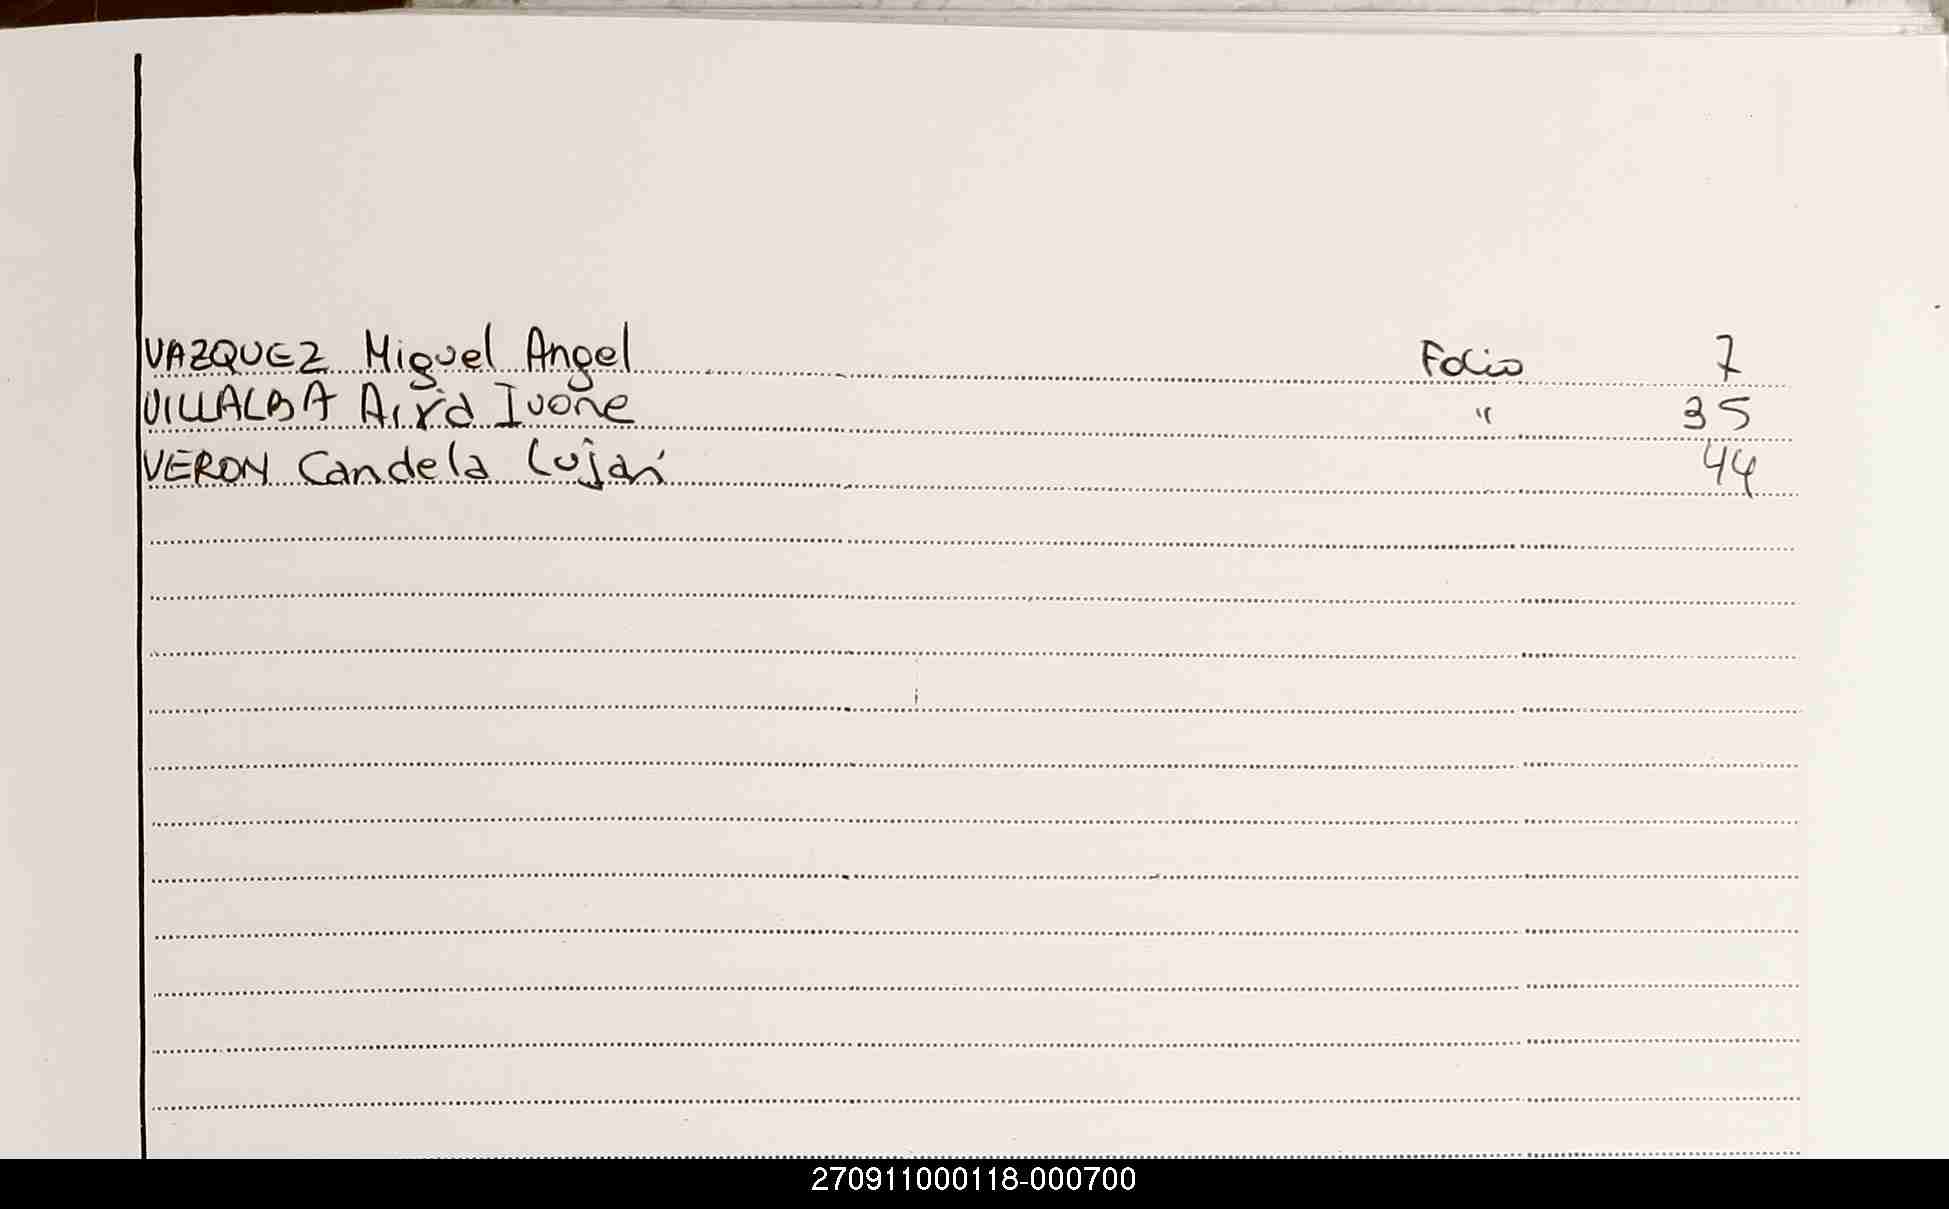 VAZQUEZ Miguel Angel Folio 7
VILLALBA Ivone " 35
VERON Candela Luján 44
270911000118-000700